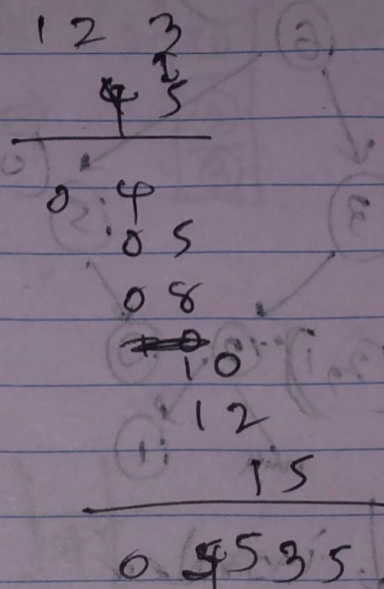 1 2 3
4 5
0 4
0 5
0 8
1 0
1 2
1 5
0 5 5 3 5